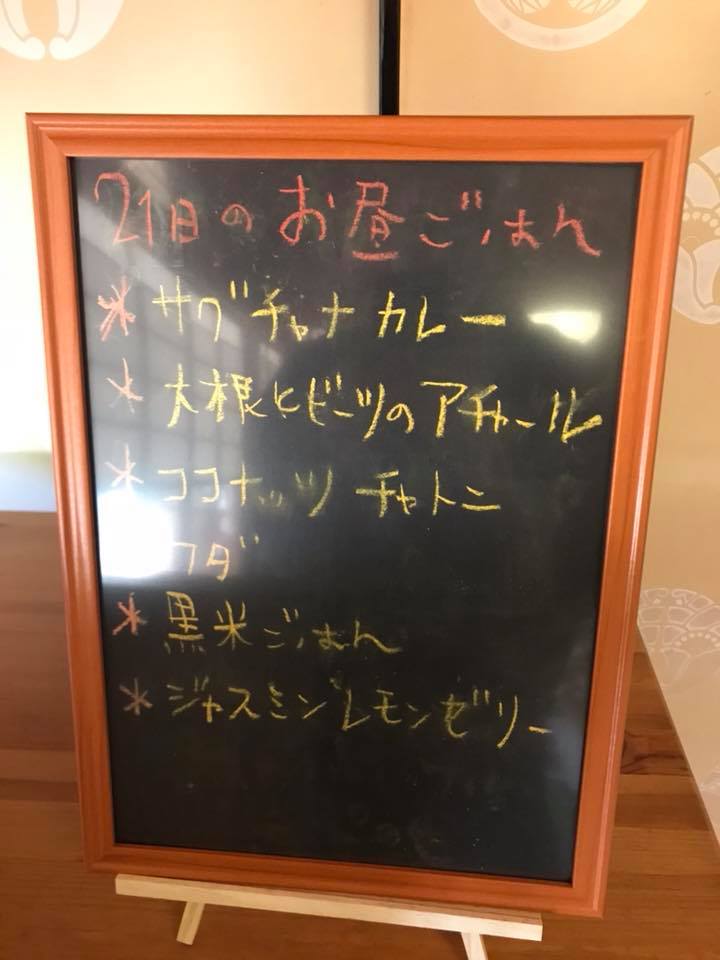 21日のお昼ごはん
* サグチャナカレー
* 大根とビーツのアチャール
* ココナッツ チャトニ
ワダ
* 黒米ごはん
* ジャスミンレモンゼリー